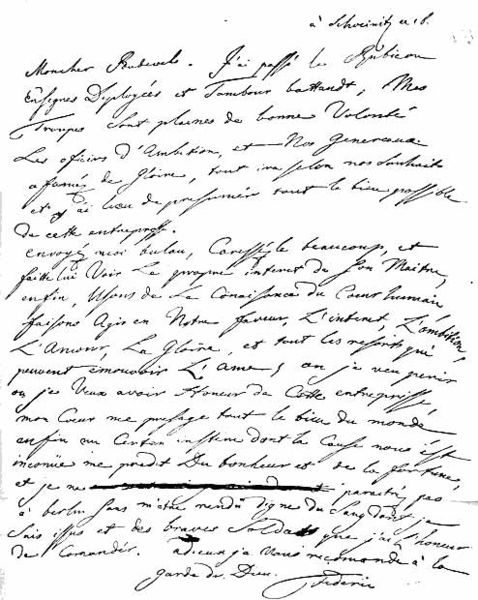 à Schweinitz ce 16.
Moncher Podevels. J'ai passé le Rubicon
Enseignes Deployées et Tambour battandt, Mes
Troupes sont pleines de bonne Volonté
Les oficirs d'Ambition, et Nos Genereaux
afamés de Gloire, tout ira selon nos Souhaits
et j'ai lieu de presumér tout le bien possible
de cette entreprise.
envoyé moi bulau, Caressés le beaucoup, et
faite lui Voir Le propre interet de son Maitre,
enfin, Usons de La Conaissance du Coeur humain
faisons Agir en Notre faveur, L'interet, L'ambition,
L'Amour, La Gloire, et tout les ressorts qui
peuvent émouvoir L'Ame; ou je veu perir
ou je Veux avoir Honeur de Cette entreprisse,
mon Coeur me presage tout le bien du monde
enfin un Certain instinc dont la Cause nous est
inconüe me predit Du bonheur et de la fortune,
et je ne paraitré pas
à berlin sans m'etre rendü digne du Sang dont je
Suis issus et des braves Soldats que j'ai L'honeur
de Comandér. adieux je Vous recomande à la
garde de Dieu. Federic